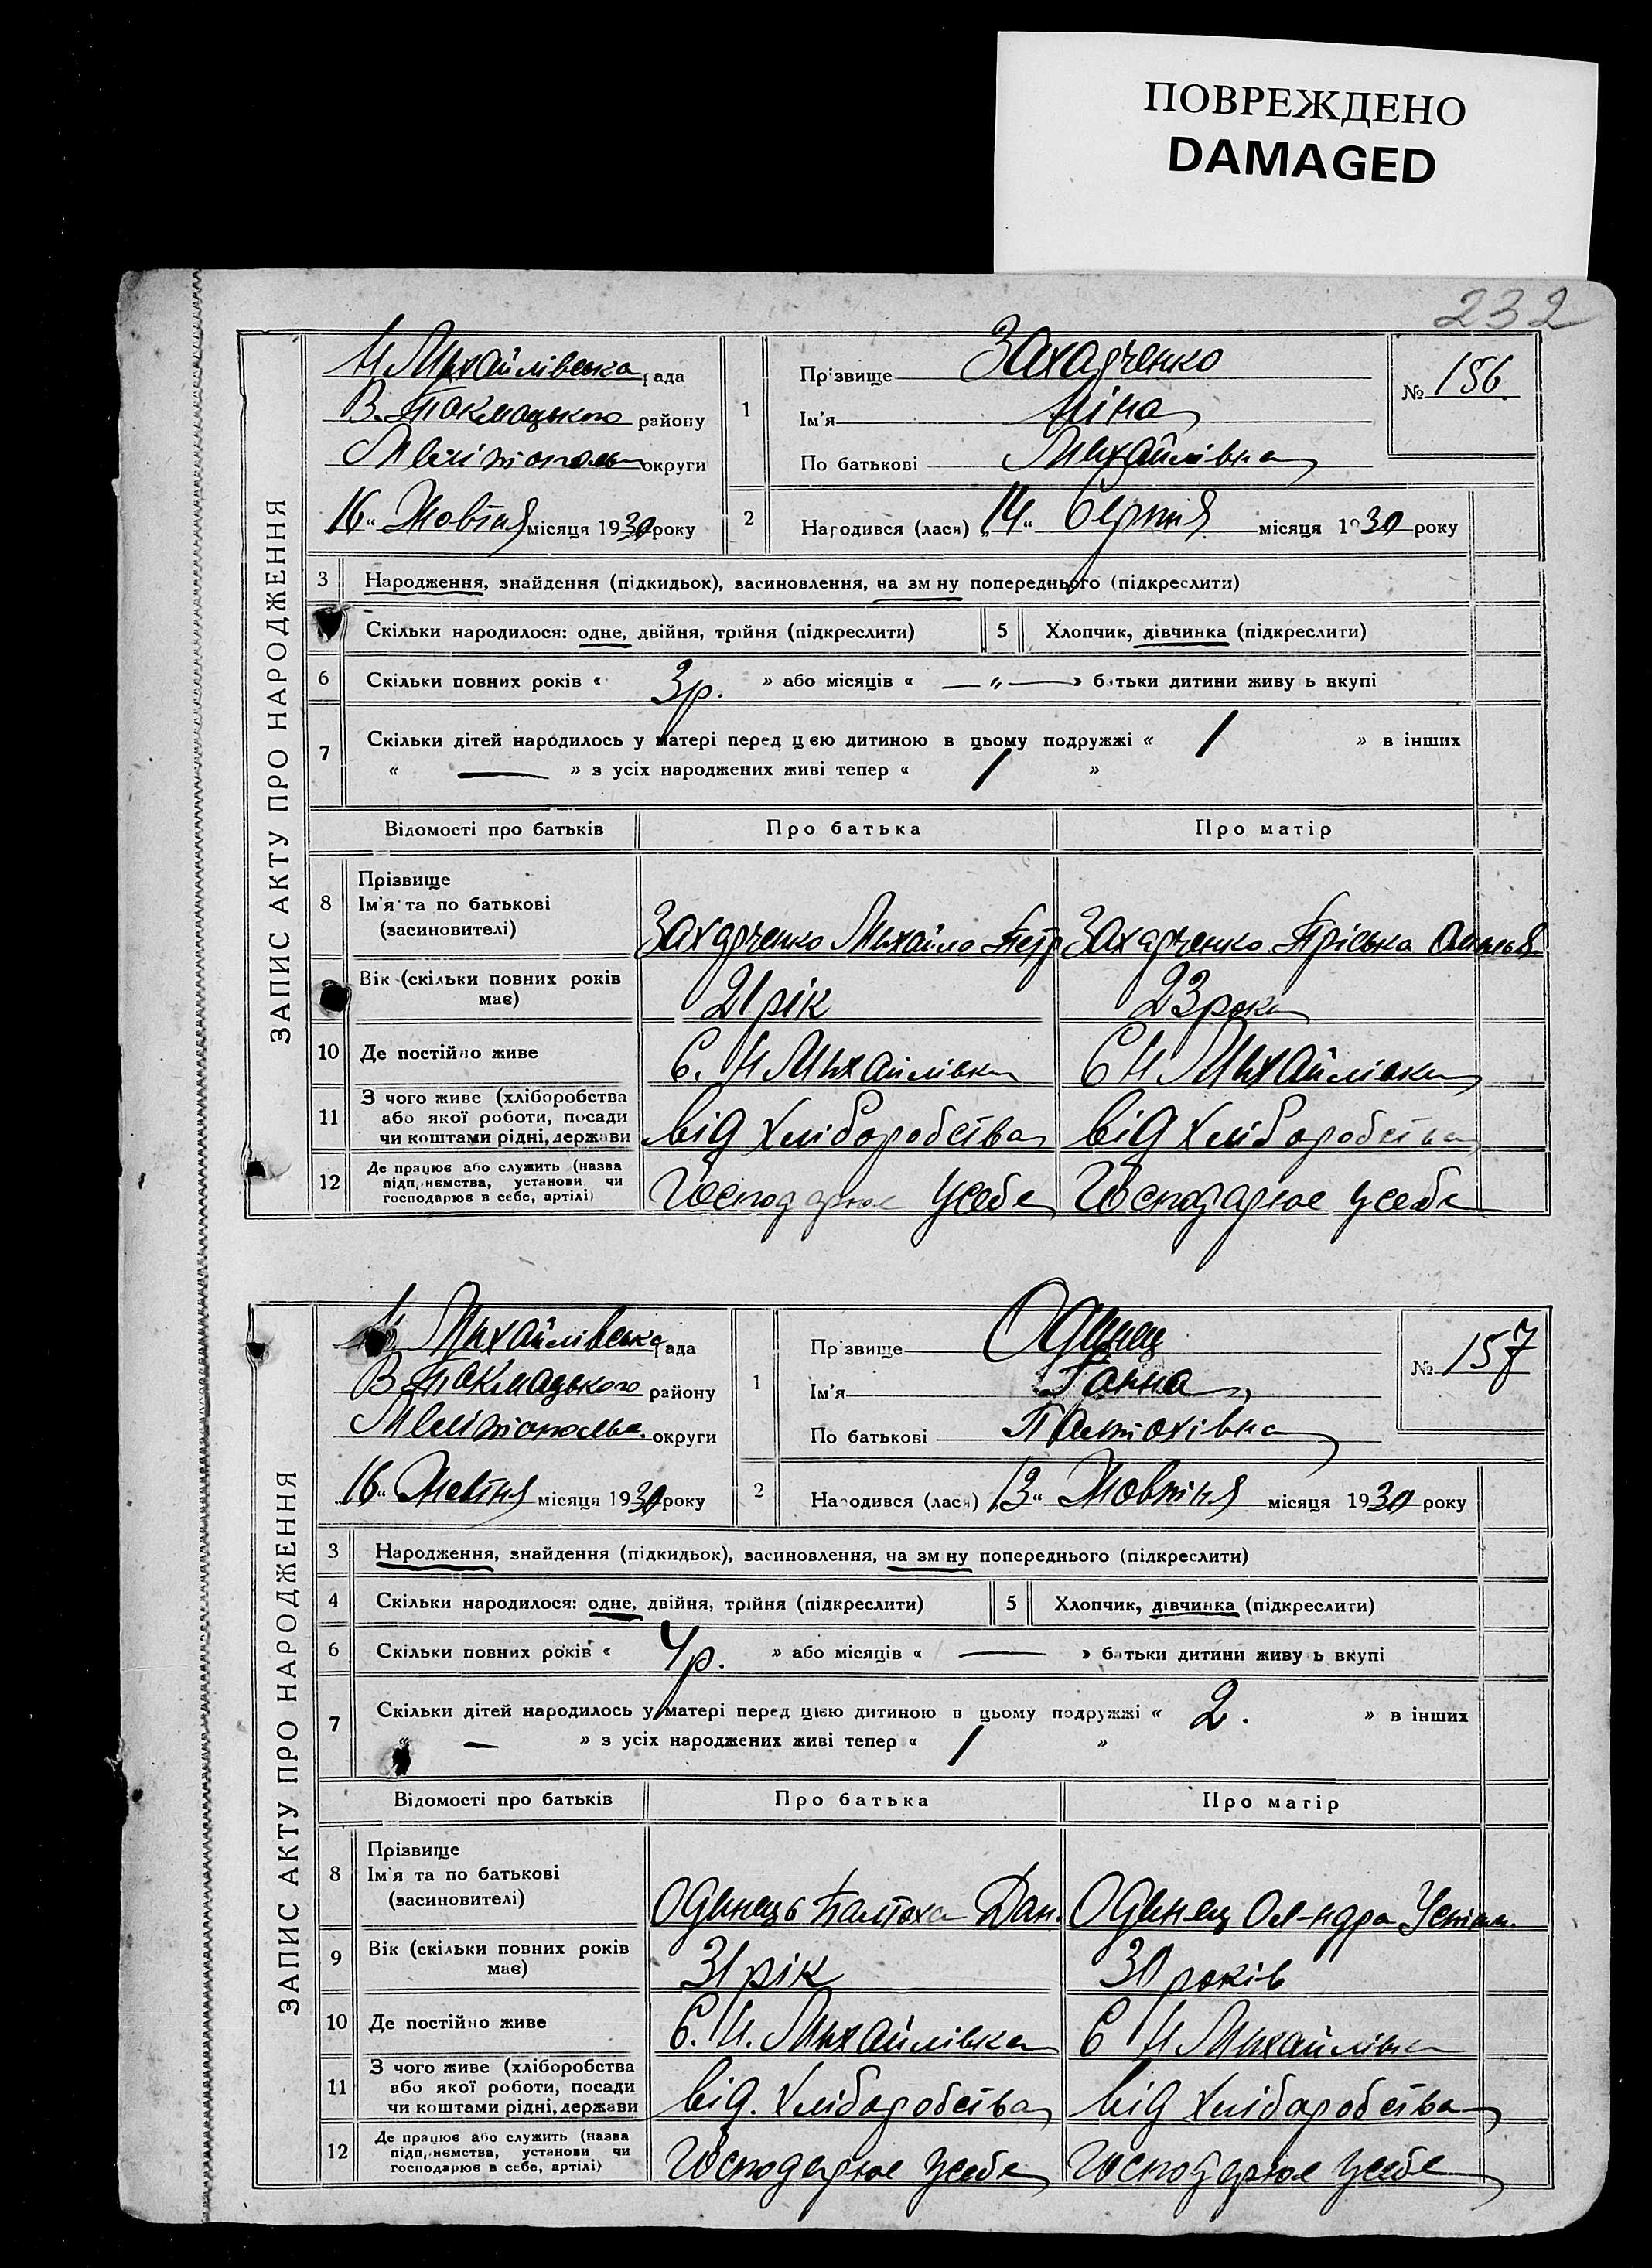 ПОВРЕЖДЕНО
DAMAGED
232
ЗАПИС АКТУ ПРО НАРОДЖЕННЯ
Н Михайлівська рада
В. Токмацького району
Мелітополь округи
16 „ Жовтня місяця 1930 року
1
Прізвище Захарченко
Ім'я Ніна
По батькові Михайлівна
№ 156.
2 Народився (лася) „14“ Серпня місяця 1930 року
3 Народження, знайдення (підкидьок), засиновлення, на зміну попереднього (підкреслити)
Скільки народилося: одне, двійня, трійня (підкреслити) 5 Хлопчик, дівчинка (підкреслити)
6 Скільки повних років « 3р. » або місяців « —„— » батьки дитини живуть вкупі
7 Скільки дітей народилось у матері перед цією дитиною в цьому подружжі « 1 » в інших
« — » з усіх народжених живі тепер « 1 »
Відомості про батьків Про батька Про матір
8 Прізвище
Ім'я та по батькові
(засиновителі)
Захарченко Михайло Петр Захарченко Пріська
Вік (скільки повних років має) 21 рік 23 роки
10 Де постійно живе С. Н Михайлівка С Н Михайлівка
11 З чого живе (хліборобства
або якої роботи, посади
чи коштами рідні, держави
від хліборобства від хліборобства
12 Де працює або служить (назва
підприємства, установи чи
господарює в себе, артілі)
Господарює усебе Господарює усебе
ЗАПИС АКТУ ПРО НАРОДЖЕННЯ
Н. Михайлівська рада
В Токмацького району
Мелітопольс. округи
16 „ Жовтня місяця 1930 року
1
Прізвище Одинец
Ім'я Ганна
По батькові Пантохівна
№ 157
2 Народився (лася) „13“ Жовтня місяця 1930 року
3 Народження, знайдення (підкидьок), засиновлення, на зміну попереднього (підкреслити)
4 Скільки народилося: одне, двійня, трійня (підкреслити) 5 Хлопчик, дівчинка (підкреслити)
6 Скільки повних років « 4р. » або місяців « — » батьки дитини живуть вкупі
7 Скільки дітей народилось у матері перед цією дитиною в цьому подружжі « 2. » в інших
« — » з усіх народжених живі тепер « 1 »
Відомості про батьків Про батька Про матір
8 Прізвище
Ім'я та по батькові
(засиновителі)
Одинець Пантоха Дан. Одинец Ол-ндра Устим.
9 Вік (скільки повних років має) 31 рік 30 років
10 Де постійно живе С. Н. Михайлівка С Н Михайлівка
11 З чого живе (хліборобства
або якої роботи, посади
чи коштами рідні, держави
від. хліборобства від хліборобства
12 Де працює або служить (назва
підприємства, установи чи
господарює в себе, артілі)
Господарює усебе Господарює усебе